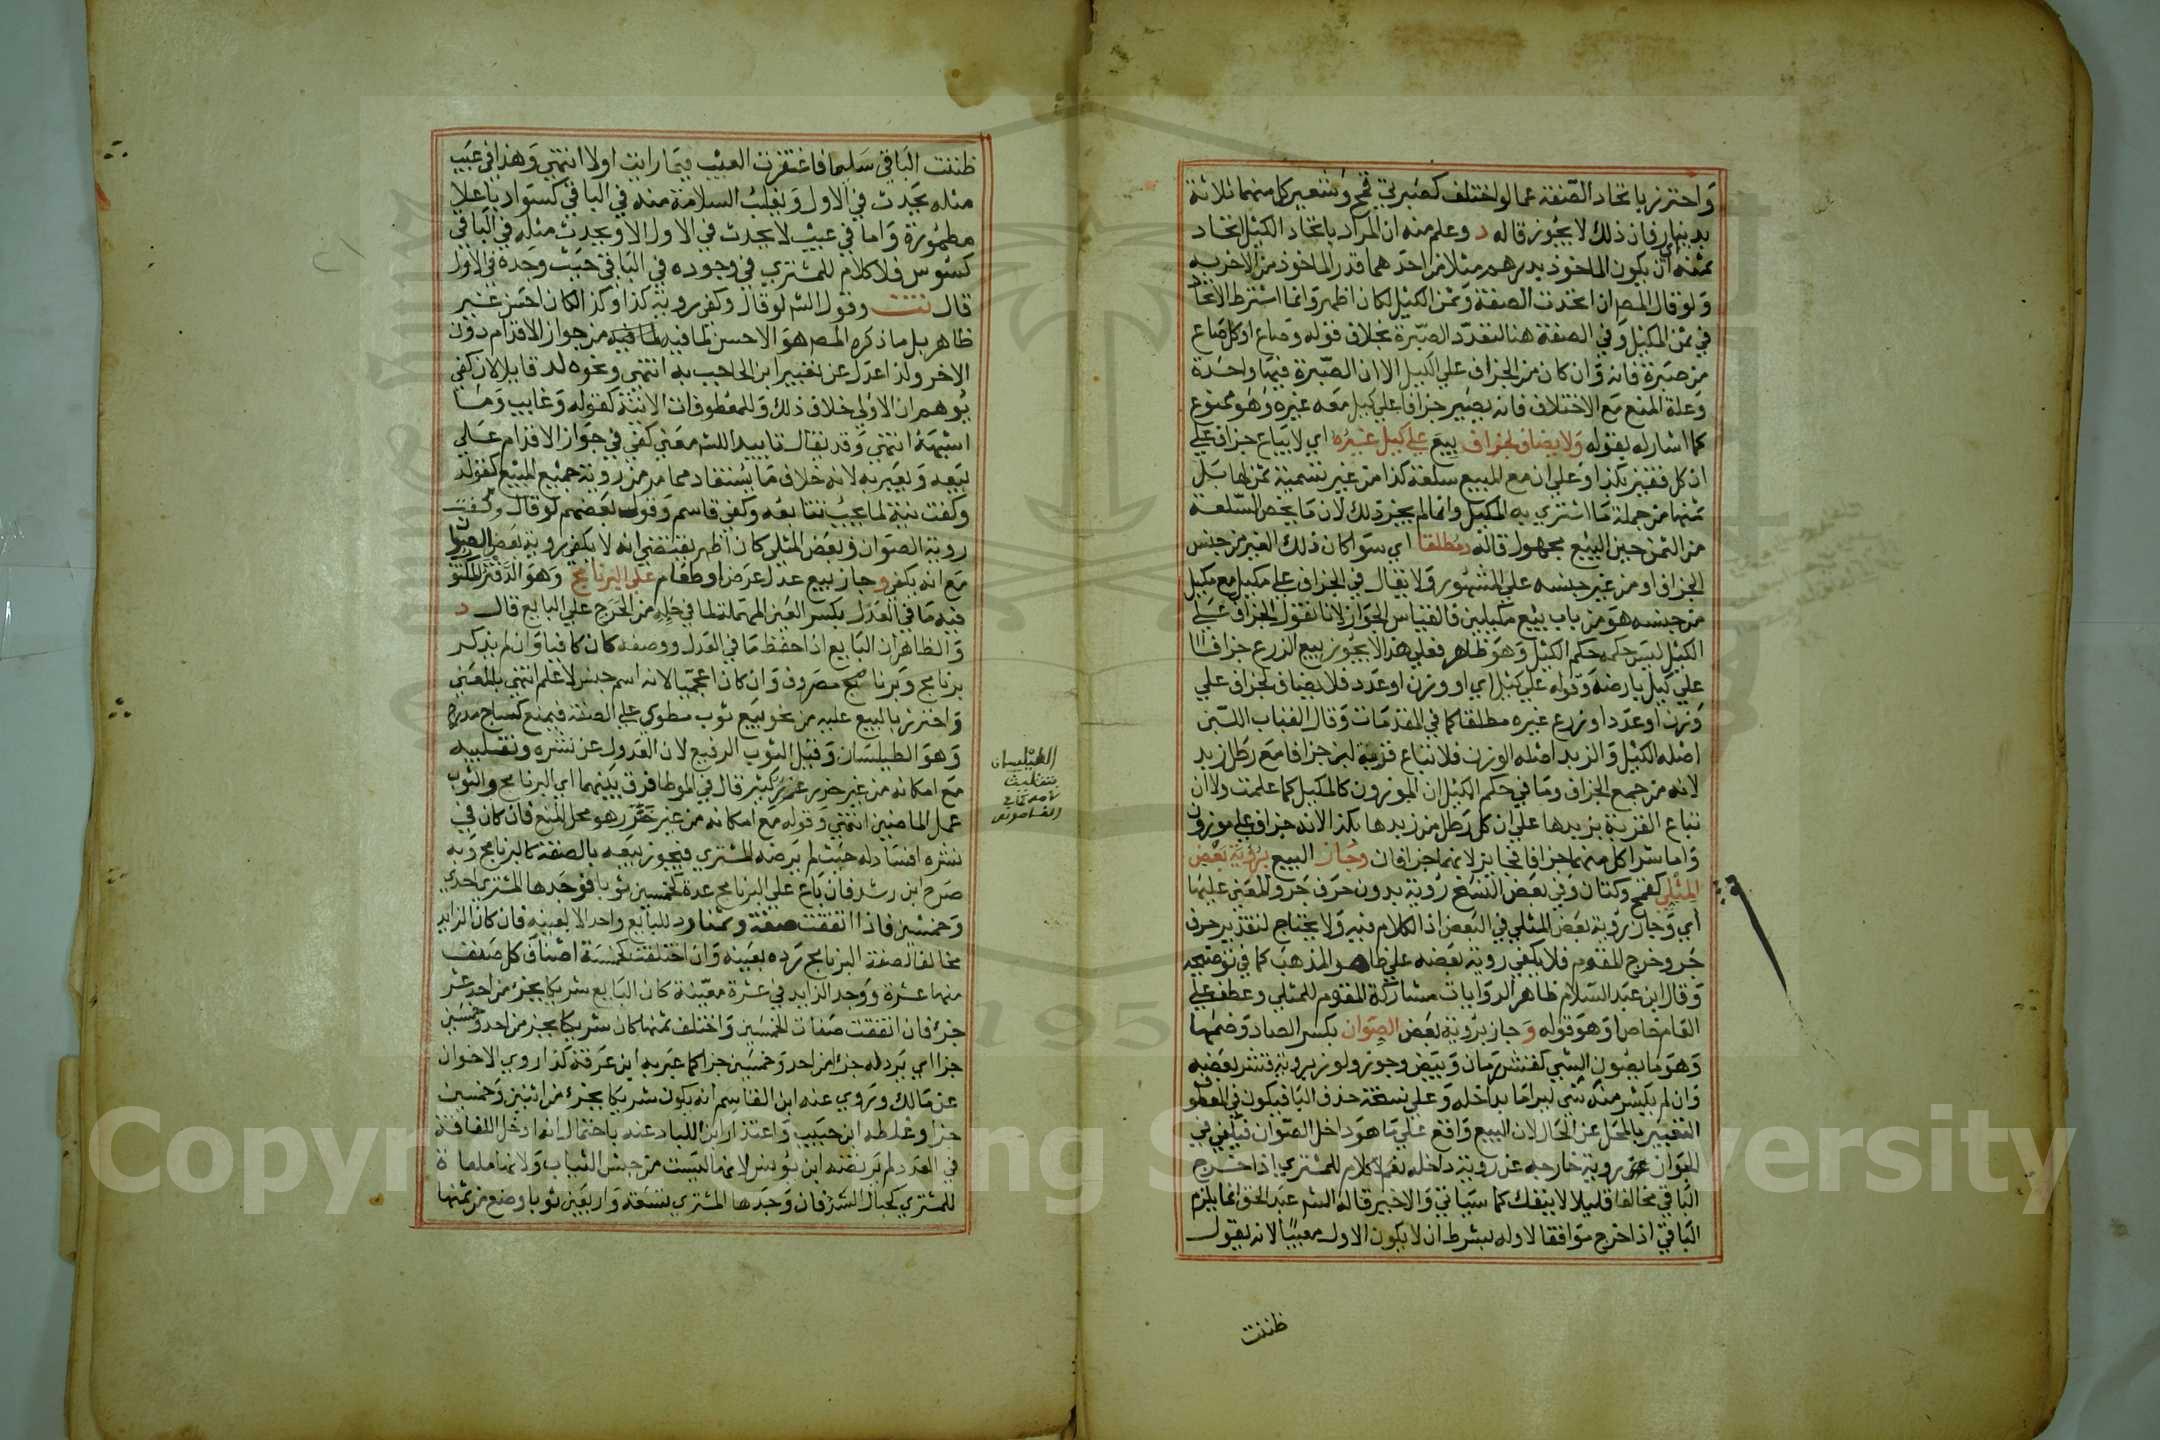 واحترز باتحاد الصفقة عما لو اختلف كصبرتي قمح وشعير كل منهما ثلاثة
بدينار فان ذلك لا يجوز قاله د وعلم منه ان المراد باتحاد الكيل اتحاد
ثمنه اي ان يكون الماخوذ بدرهم مثلا من احدهما قدر الماخوذ من الاخر به
ولو قال المص ان اتحدت الصفقة وثمن الكيل لكان اظهر وانما اشترط الاتحاد
في ثمن المكيل وفي الصفقة هنا لتعدد الصبرة بخلاف قوله وصاع او كل صاع
من صبرة فانه وان كان من الجزاف علي الكيل الا ان الصبرة فيها واحدة
وعلة المنع مع الاختلاف فانه يصير جزافا علي كيل معه غيره وهو ممنوع
كما اشار له بقوله ولا يضاف لجزاف بيع علي كيل غيره اي لا يباع جزاف علي
ان كل قفيز بكذا وعلي ان مع المبيع سلعة كذا من غير تسمية ثمن لها بل
ثمنها من جملة ما اشتري به المكيل وانما لم يجز ذلك لان ما يخص السلعة
من الثمن حين البيع مجهول قاله د مطلقا اي سوا كان ذلك الغير من جنس
الجزاف او من غير جنسه علي المشهور ولا يقال في الجزاف علي مكيل مع مكيل
من جنسه هو من باب بيع مكيلين فالقياس الجواز لانا نقول الجزاف علي
الكيل ليس حكمه حكم الكيل وهو ظاهر فعلي هذا لا يجوز بيع الزرع جزافا
علي كيل بارضه وقوله علي كيل اي او وزن او عدد فلا يضاف لجزاف علي
وزن او عدد او زرع غيره مطلقا كما في المقدمات وقال القباب اللبن
اصله الكيل والزبد اصله الوزن فلا تباع قربة لبن جزافا مع رطل زبد
لانه من جمع الجزاف وما في حكم الكيل ان الموزون كالمكيل كما علمت ولا ان
تباع القربة بزبدها علي ان كل رطل من زبدها بكذا لانه جزاف علي موزون
واما شرا كل منهما جزافا فجايز لانهما جزافان وجاز البيع برؤية بعض
المثلي كقمح وكتان وفي بعض النسخ رؤية بدون حرف جر والمعني عليها
اي وجاز رؤية بعض المثلي في البعض اذ الكلام فيه ولا يحتاج لتقدير حرف
جر وخرج المقوم فلا يكفي رؤية بعضه علي ظاهر المذهب كما في توضيحه
وقال ابن عبد السلام ظاهر الروايات مشاركة المقوم للمثلي وعطف علي
العام خاصا وهو قوله و جاز برؤية بعض الصوان بكسر الصاد وضمها
وهو ما يصون الشي كقشر رمان وبيض وجوز ولوز برؤية قشر بعضه
وان لم يكسر منه شي ليرا ما بداخله وعلي نسخة حذف اليا فيكون في المعطو
التعبير بالمحل عن الحال لان البيع واقع علي ما هو داخل الصوان فيكفي في
الصوان عن رؤية خارجه عن رؤية داخله نعم لا كلام للمشتري اذا خرج
الباقي مخالفا قليلا لا ينفك كما سياتي والاخير قاله الشم عبد الحق انما يلزم
الباقي اذا خرج موافقا لاوله بشرط ان لا يكون الاول معيبا لانه يقول
ظننت
ظننت الباقي سليما فاغتفرت العيب فيما رايت اولا انتهي وهذا في عيب
مثله يحدث في الاول ويغلب السلامة منه في الباقي كسواد باعلا
مطمورة واما في عيب لا يحدث في الاول الا ويحدث مثله في الباقي
كسوس فلا كلام للمشتري في وجوده في الباقي حيث وجده في الاول
قال تت وقول الشم لو قال وكفي رؤية كذا وكذا لكان احسن غير
ظاهر بل ما ذكره المص هو الاحسن لما فيه من جواز الاقدام دون
الاخر ولذا عدل عن تعبير ابن الحاجب به انتهي ونحوه لد قايلا لان كفي
يوهم ان الاولي خلاف ذلك وللمعطوفات الاتية كقوله وغايب وما
اشبهه انتهي وقد يقال تاييدا للشم معني كفي في جواز الاقدام علي
بيعه ويعبر به لانه خلاف ما يستفاد مما مر من رؤية جميع المبيع كقوله
وكفت نية لما يجب تتابعه وكفي قاسم وقول بعضهم لو قال وكفت
رؤية الصوان وبعض المثلي كان اظهر يقتضي انه لا يكفي رؤية بعض الصوا
مع انه يكفي وجاز بيع عدل عرض او طعام علي البرنامج وهو الدفتر المكتو
فيه ما في العدل بكسر العين المهملة لما في حله من الحرج علي البايع قال د
والظاهر ان البايع اذا حفظ ما في العدل ووصفه كان كافيا وان لم يذكر
برنامج وبرنامج مصروف وان كان اعجميا لانه اسم جنس لا علم انتهي بالمعني
واحترز بالبيع عليه من نحو بيع ثوب مطوي علي الصفة فيمنع كساج مدرج
وهو الطيلسان وقيل الثوب الرفيع لان العدول عن نشره وتقليبه
مع امكانه من غير ضرر غرر كثير قال في الموطا فرق بينهما اي البرنامج والثوب
عمل الماضين انتهي وقوله مع امكانه من غير ضرر هو محل المنع فان كان في
نشره افساد له حيث لم يرضه المشتري فيجوز بيعه بالصفة كالبرنامج وبه
صرح ابن رشد فان باع علي البرنامج عدة كخمسين ثوبا فوجدها المشتري احدي
وخمسين فاذا اتفقت صفة وثمنا رد للبايع واحدا لا بعينه فان كان الزايد
مخالفا لصفة البرنامج رده بعينه وان اختلفت كخمسة اصناف كل صنف
منها عشرة ووجد الزايد في عشرة معينة كان البايع شريكا بجزء من احد عشر
جزء فان اتفقت صفات الخمسين واختلف ثمنها كان شريكا بجزء من احد وخمسين
جزا اي يرد له جزا من احد وخمسين جزا كما عبر به ابن عرفة كذا روي الاخوان
عن مالك وروي عنه ابن القاسم انه يكون شريكا بجزء من اثنين وخمسين
جزا وغلطه ابن حبيب واعتذار ابن اللباد عنه باحتمال انه ادخل اللفافة
في العدد لم يرتضه ابن يونس لانها ليست من جنس الثياب ولانها ملغاة
للمشتري كحبال الشد فان وجدها المشتري تسعة واربعين ثوبا وضع من ثمنها
الطيلسان
القاموس